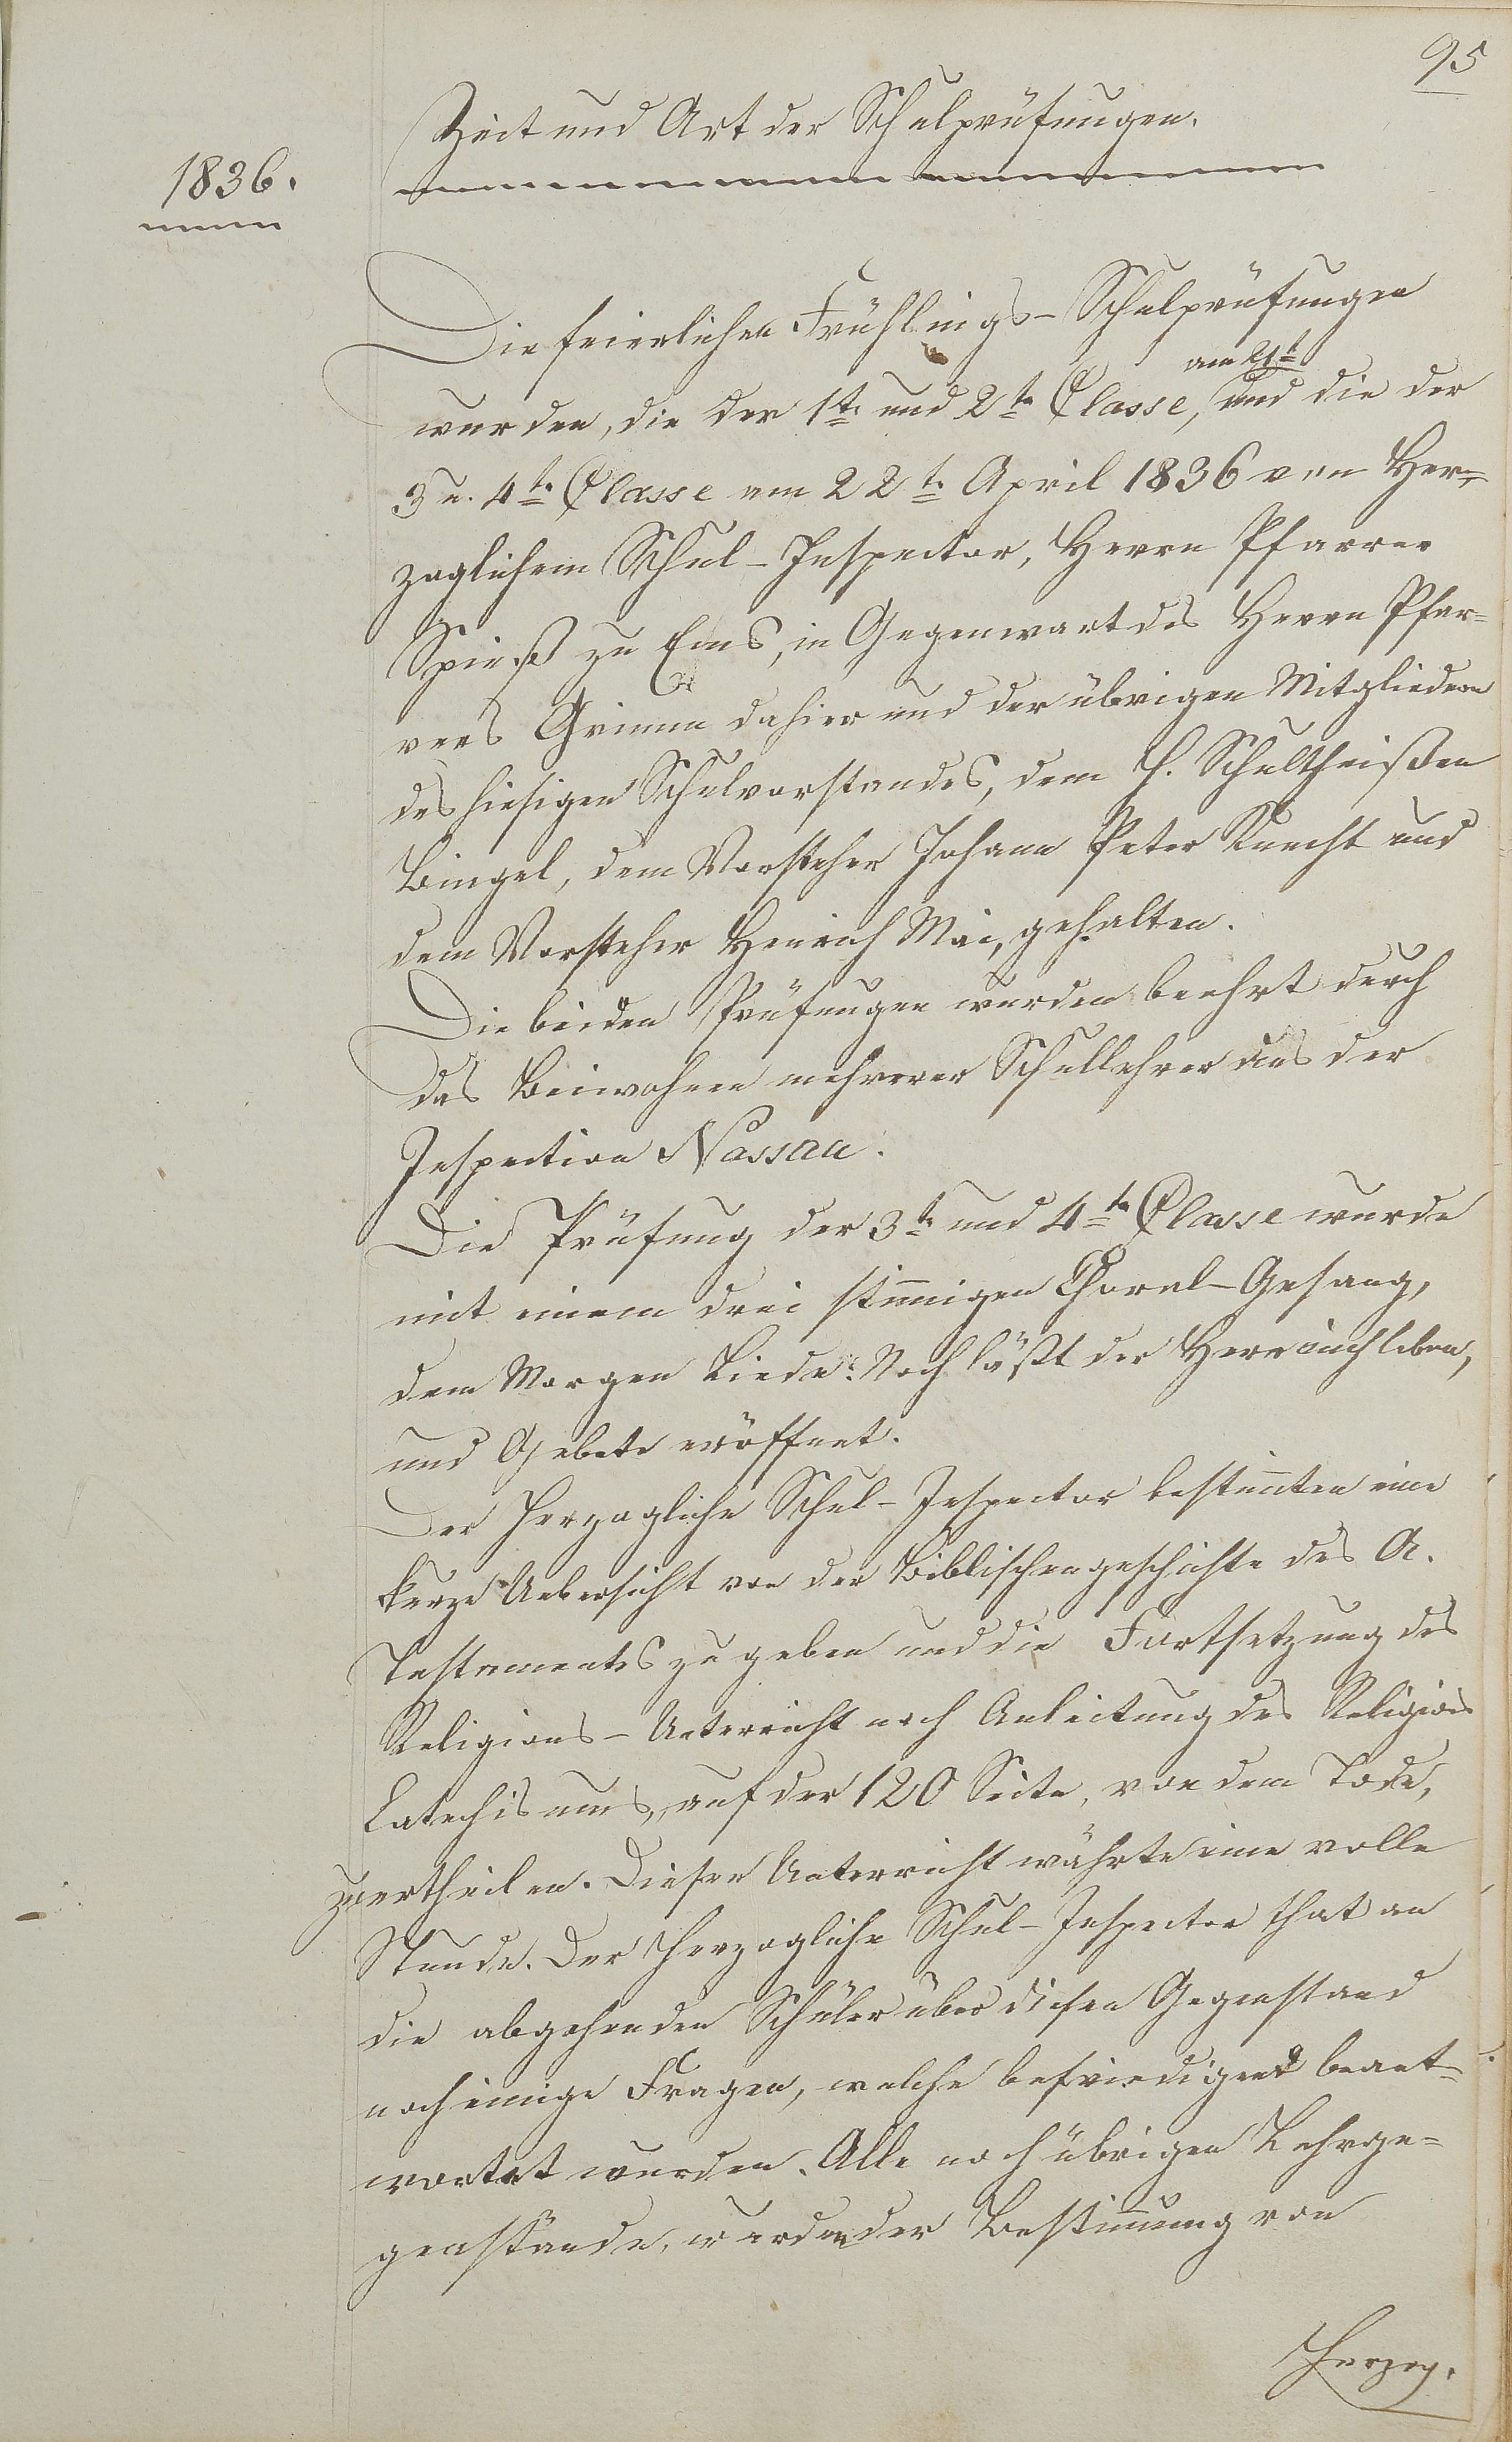 95
Zeit und Art der Schulprüfungen.
1836.
Die feierlichen Frühlings-Schulprüfungen
am 21t
wurden, die der 1te und 2te Classe, und die der
3 u. 4te Classe am 22te April 1836 von Her-
zoglichem Schul-Inspector, Herrn Pfarrer
Spieß zu Ems, in Gegenwart des Herrn Pfar-
rers Grimm dahier und der übrigen Mitgliedern
des hiesigen Schulvorstandes, dem H. Schultheißen
Bingel, dem Vorsteher Johann Peter Knecht und
dem Vorsteher Henrich Mai, gehalten.
Die beiden Prüfungen wurden beehrt durch
das Beiwohnen mehrerer Schullehrer aus der
Inspection Nassau.
Die Prüfung der 3te und 4te Classe wurde
mit einem drei stimigen Choral-Gesang,
dem Morgen Liede: Noch läßt der Herr mich leben,
und Gebete eröffnet.
Der Herzogliche Schul-Inspector bestimten eine
kurze Uebersicht von der Biblischengeschichte des A.
Testamentes zu geben und die Fortsetzung des
Religions-Unterricht nach Anleitung des Religions
Catechismus, auf der 120 Seite, von dem Tode,
zuertheilen. Dieser Unterricht währte eine volle
Stunde. Der Herzogliche Schul-Inspector that an
die abgehenden Schüler über diesen Gegenstand
noch einige Fragen, welche befriedigend beant-
wortet wurden. Alle noch übrigen Lehrge-
genstände, wurden der Bestimmung von
Herzog.